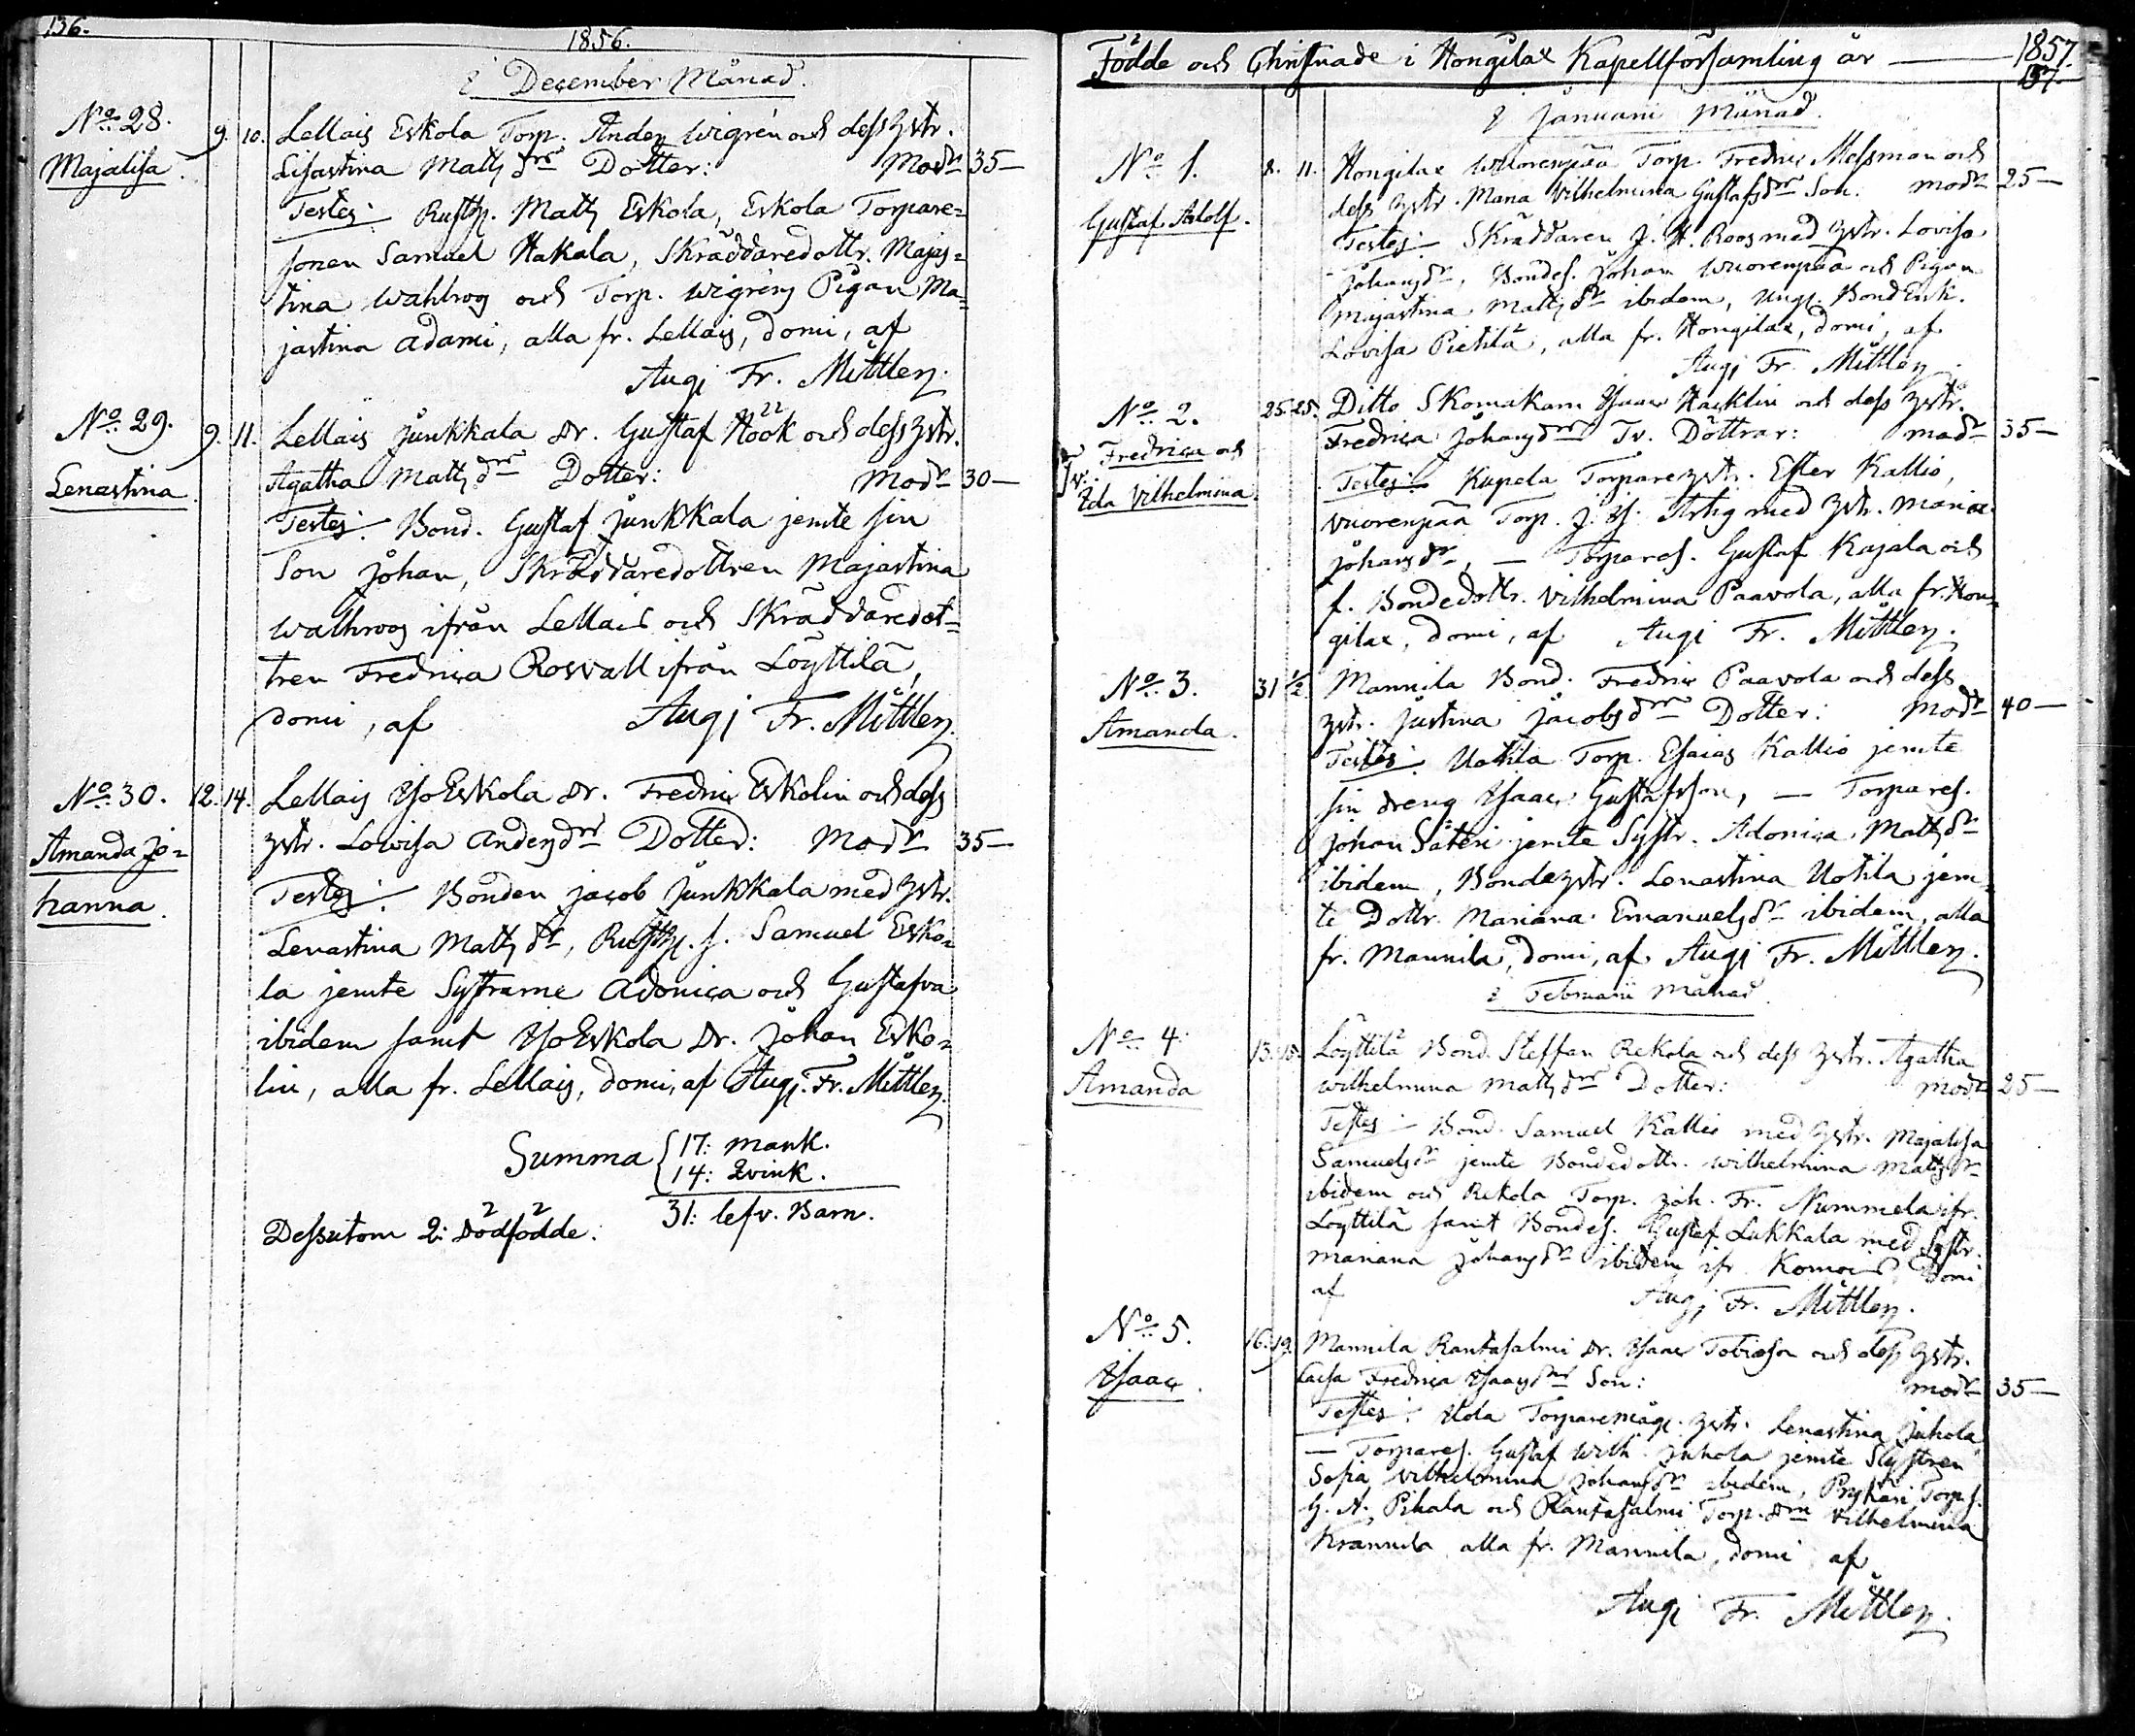 136.
1856.
i December Månad.
No 28. 9. 10. Lellais Eskola Torp. Anders Wigrén och dess hstr.
Majalisa. Lisastina Mattsdr Dotter: Modr 35—
Testes: Rusth. Matts Eskola, Eskola Torpare=
sonen Samuel Hakala, Skräddaredottr. Majas=
tina Wahlroos och Torp. Wigréns Pigan Ma=
jastina Adami, alla fr. Lellais, domi, af
Augs Fr. Mittler.
No 29. 9. 11. Lellais Junkkala Dr. Gustaf Höök och dess hstr.
Lenastina. Agatha Mattsdr Dotter: Modr 30—
Testes: Bond. Gustaf Junkkala jemte sin
Son Johan, Skräddaredottren Majastina
Walhroos ifrån Lellais och Skräddaredot=
tren Fredrica Rosvall ifrån Löyttilä,
domi, af Augs Fr. Mittler.
No 30. 12. 14. Lellais YsoEskola Dr. Fredric Eskolin och dess
Amanda Jo= hstr. Lovisa Andersdr Dotter: Modr 35—
hanna. Testes: Bonden Jacob Junkkala med hstr.
Lenastina Mattsdr, Rusth. s. Samuel Esko=
la jemte Systrarne Adonica och Gustafva
ibidem samt YsoEskola Dr. Johan Esko=
lin, alla fr. Lellais, domi, af Augs. Fr. Mittler.
Summa { 17: Mank.
14: Qvink.
31: lefv. Barn.
Dessutom 2: Dödfödde.
Födde och Christnade i Hongilax Kapellförsamling år — 1857.
137.
i Januarii Månad.
No 1. 8. 11. Hongilax Wuorenpää Torp. Fredric Messman och
Gustaf Adolf. dess hstr. Maria Vilhelmina Gustafsdr Son. modr 25—
Testes: Skräddaren J. H. Roos med hstr. Lovisa
Johansdr, Bondes. Johan Wuorenpää och Pigan
Majastina Mattsdr ibidem, Ungs. BondEnk.
Lovisa Pietilä, alla fr. Hongilax, domi, af
Augs Fr. Mittler.
No 2. 25. 25. Ditto Skomakarn Ysaac Hacklin och dess hstr.
Fredrica och Fredrica Johansdr Tv. Döttrar: modr 35—
Ida Vilhelmina Testes: Kupela Torparehstr. Ester Kallio,
Vuorenpää Torp. J. Artig med hstr. Maria
Johansdr, — Torpares. Gustaf Kajala och
f. Bondedottr. Vilhelmina Paavola, alla fr. Hon=
gilax, domi, af Augs Fr. Mittler.
No 3. 31 1/2 Mannila Bond. Fredric Paavola och dess
Amanda. hstr. Justina Jacobsdr Dotter: Modr 40—
Testes: Uotila Torp. Esaias Kallio jemte
sin dreng Ysaac Gustafsson, — Torpares.
Johan Säteri jemte Systr. Adonica Mattsdr
ibidem, Bondehstr. Lenastina Uotila jem=
te Dottr. Mariana Emanuelsdr ibidem, alla
fr. Mannila, domi, af Augs Fr. Mittler.
i Februarii Månad.
No 4. 13. 15. Löyttilä Bond. Steffan Rekola och dess hstr. Agatha
Amanda Wilhelmina Mattsdr Dotter: modr 25—
Testes: Bond. Samuel Kallio med hstr. Majalisa
Samuelsdr jemte Bondedottr. Wilhelmina Mattsdr
ibidem och Rekola Torp. Joh. Fr. Nummela ifr.
Löyttilä samt Bondes. Gustaf Lukkala med Systr.
Mariana Johansdr ibidem ifr. domi
af Augs Fr. Mittler.
No 5. 16. 19. Mannila Rantasalmi Dr. Ysaac Tobiason och dess hstr.
Ysaac. Caisa Fredrica Ysaacsdr Son: modr 35—
Testes: Torparemåg. hstr. Lenastina Juhola
— Torpares. Gustaf Wilh. Juhola jemte Systren
Sofia Vilhelmina Johansdr ibidem, Torps.
G. A. Pihala och Rantasalmi Torp. drn Vilhelmina
Krannila alla fr. Mannila, domi af
Augs Fr. Mittler.